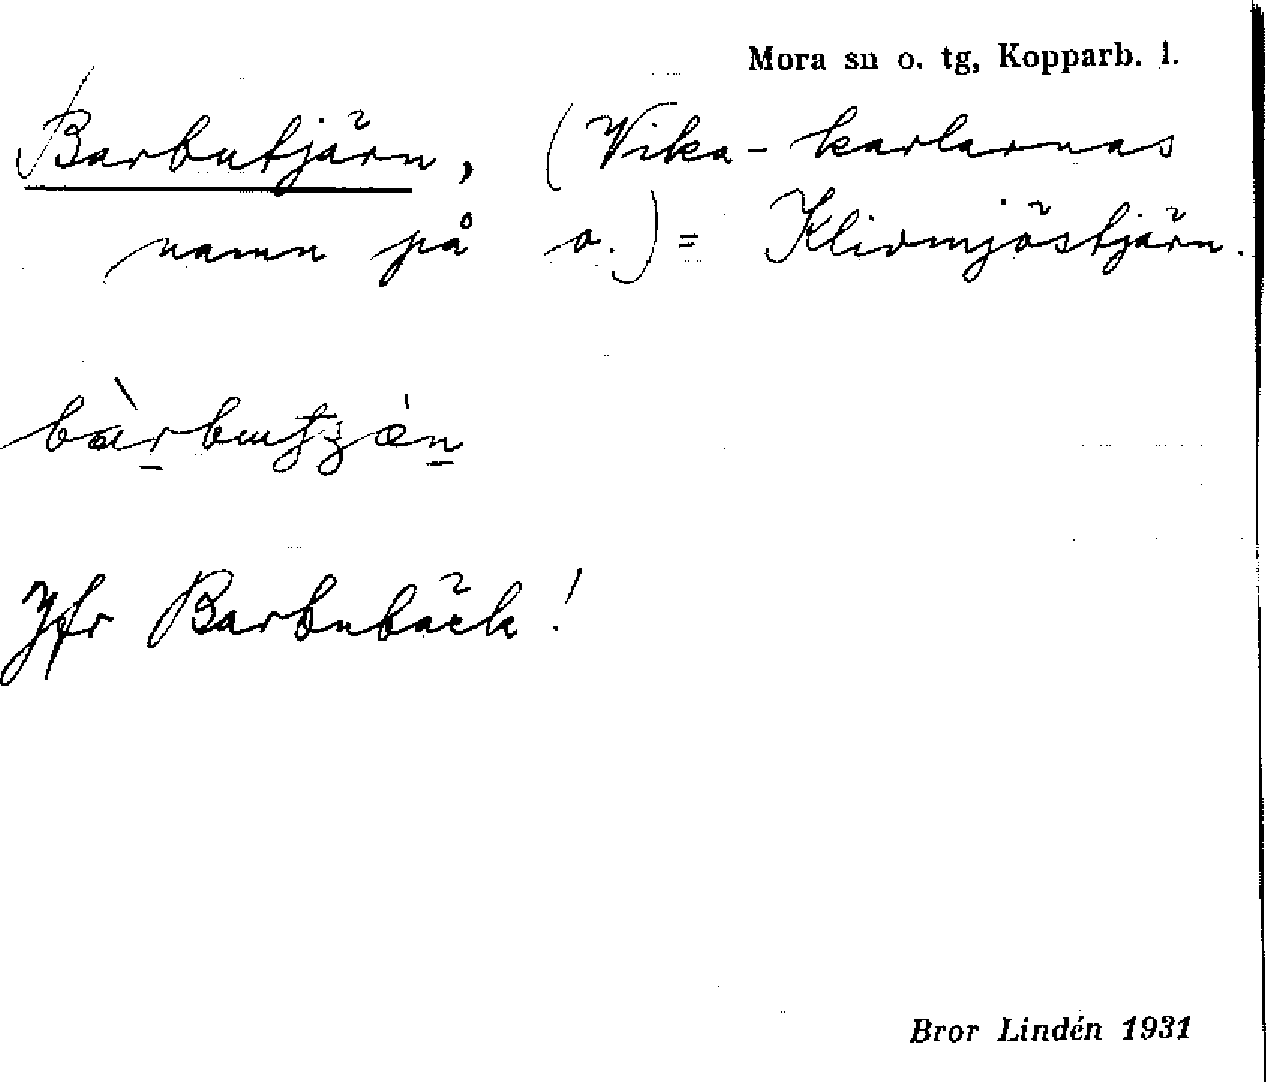 Mora sn o. tg, Kopparb. l.
Barbutjärn, (Vika-karlarnas
namn på o.) = Klivmjöstjärn.
Jfr Barbubäck!
Bror Lindén 1931